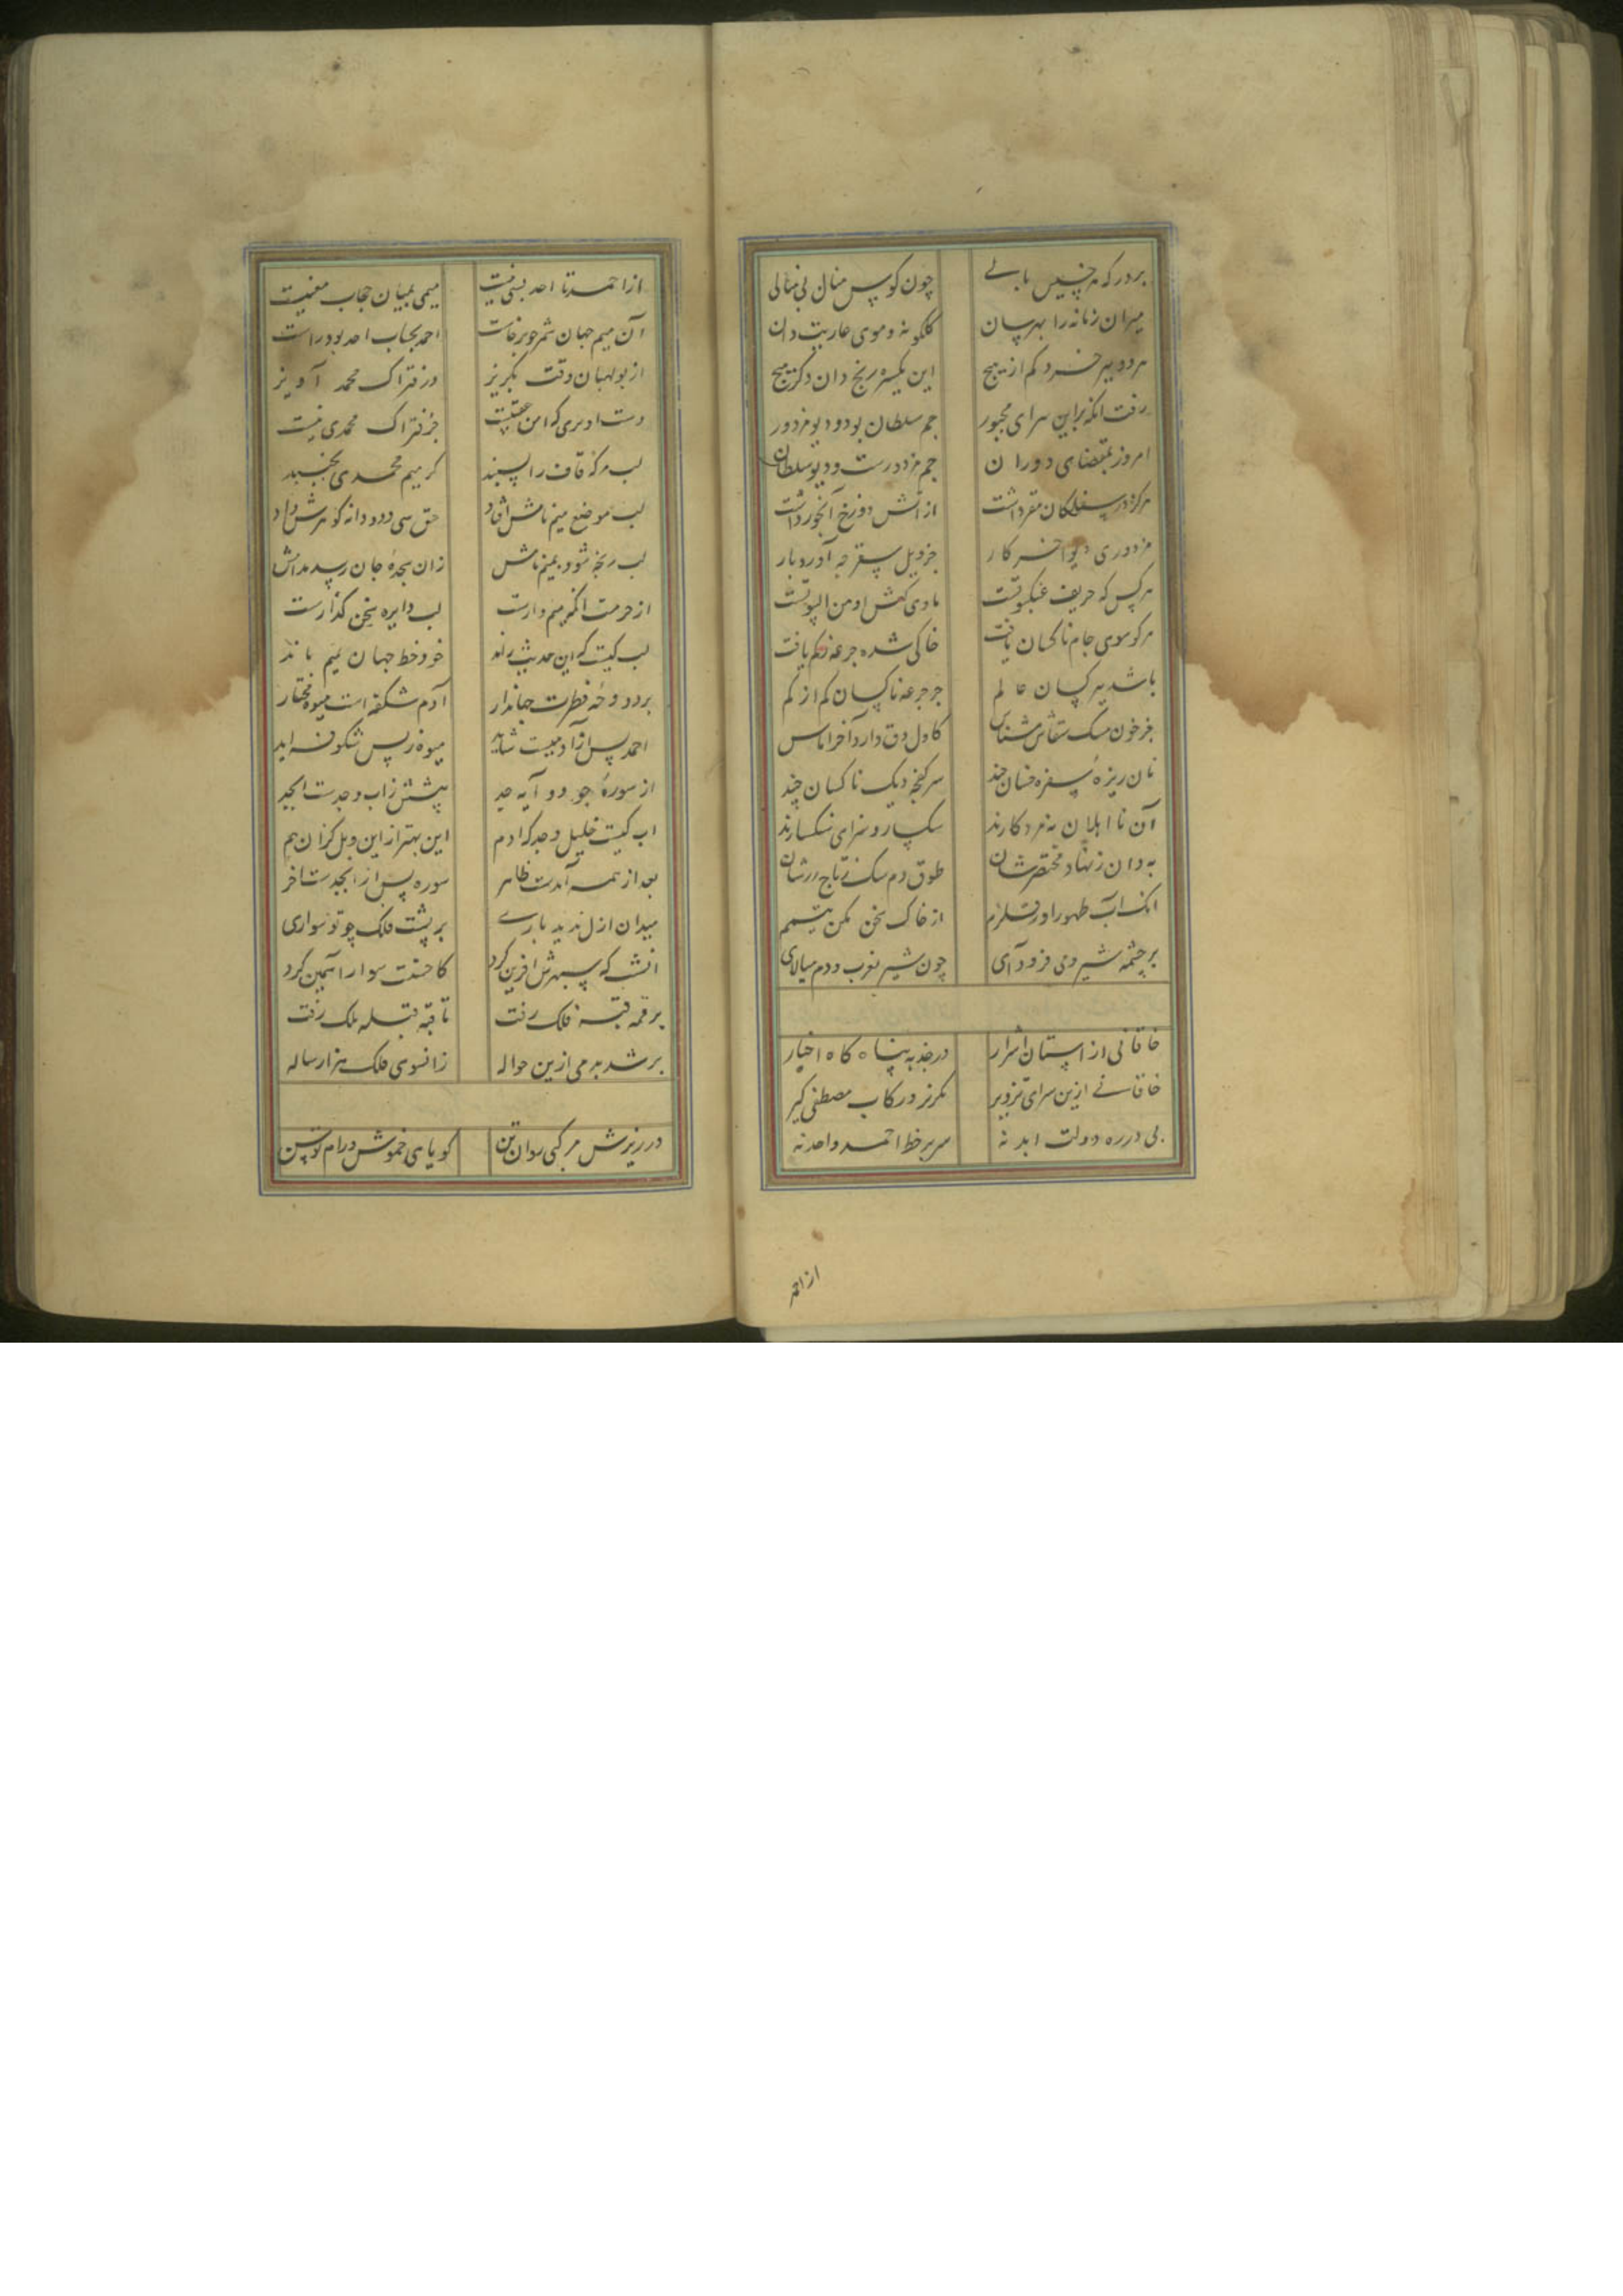 بردرکه هر خسیس بابی چون کوس منال بی منالی
میران زمانه را بهرسان کلکونه و موی عاریت دان
هر دو بر خرد کم از هیچ این یکسره رنج دان دکر هیچ
رفت انکه براین سرای مجبور جم سلطان بود و دیو مزدور
امروز بمقتضای دوران جم مزدورست و دیو سلطان
هرکز در سفلکان مقر داشت از اتش دوزخ آبخور داشت
مزدوری دیو اخر کار جز ویل سقر چه آورد بار
هرکس که حریف عنکبوتست ماوی کهش اوهن البیوتست
هرکو سوی جام ناکسان یافت خاکی شده جرعه کم یافت
باشد بر کسان عالم جز جرعه ناکسان کم از کم
جز خون سک سقاش مشناس کاول دق دارد آخر اماس
نان ریزه سفره خسان چند سرکفچه دیک ناکسان چند
آن نا اهلان نه مرد کارند سکسار و سزای سنکسارند
به دان ز نهاد مختصرشان طوق دم سک ز تاج زرشان
انک اب طهور اور قلزم از خاک سخن مکن تیمم
بر چشمه شیر و می فرود آی چون شیر بغرب و دم میالای
خاقانی از استان اشرار درجه به پناه کاه اخیار
خاقانی ازین سرای تزویر بکریز و رکاب مصطفی کیر
بی درره دولت ابد نه سر بر خط احمد و احد نه
از احمد
از احمد تا احد بسی نیست میمی بمیان حجاب معنیست
آن میم جهان شمر چو برخاست احمد بجناب احد بود راست
از بولهبان وقت بکریز در فتراک محمد آویز
دست اویزی که امن عقبیست جز فتراک محمدی نیست
لب مرکز قاف را پسندد کر میم محمدی بجنبد
لب موضع میم نامش افتاد حق سی و دو دانه کوهرش داد
لب رنجه شود بمیم نامش زان سجده جان رسد مدامش
از حرمت انکه میم وارست لب دایره سخن کذارست
لب کیست که این حدیث راند خود خط جهان بمیم ماند
بر دوحه فطرت جهاندار آدم شکفه است میوه مختار
احمد پس از آدمیست شاید میوه ز پس شکوفه اید
از سوره جود و آیه جد پیشش ز اب و جدست ابجد
اب کیست خلیل و جد که ادم این بهتر از این وبل کز ان هم
بعد از همه آمدست ظاهر سوره پس از ابجدست اخر
میدان ازل ندید باری بر پشت فلک چو تو سواری
انشب که سپهرش افرین کرد کاحسنت سوار راستین کرد
بر قمه قبه فلک رفت تا قبه قبله ملک رفت
بر شد به می ازین حواله زانسوی فلک هزار ساله
در ریزش مرکبی روان تن کویاهی خموش و رام توسن